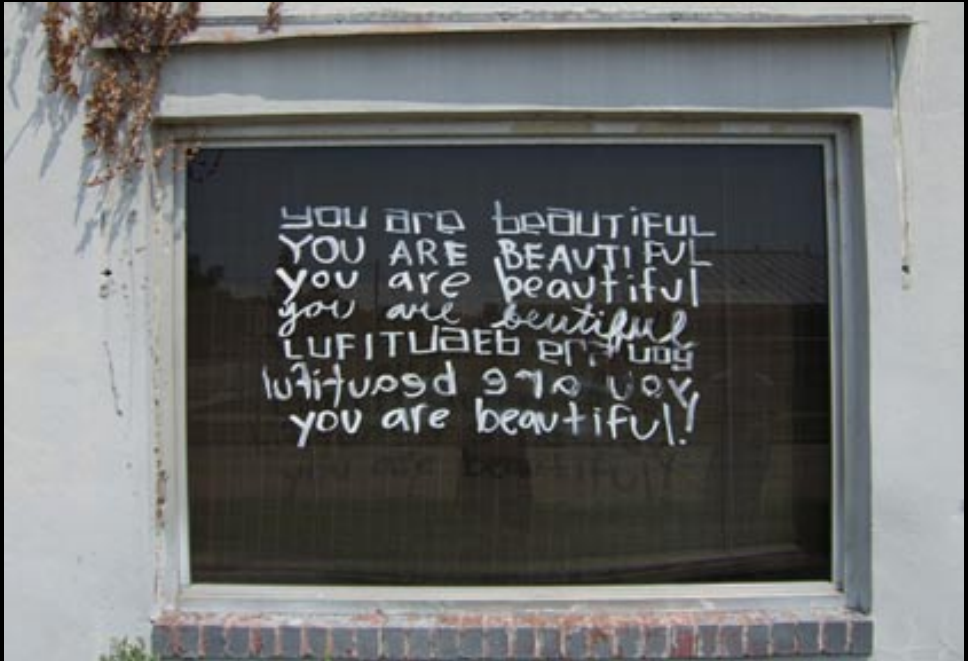 you are beaUTiFUL
YOU ARE BEAUTIFUL
you are beautiful
you are beutiful
LUFITUaEB era uoy
lufituaeb era uoy
you are beautiful!